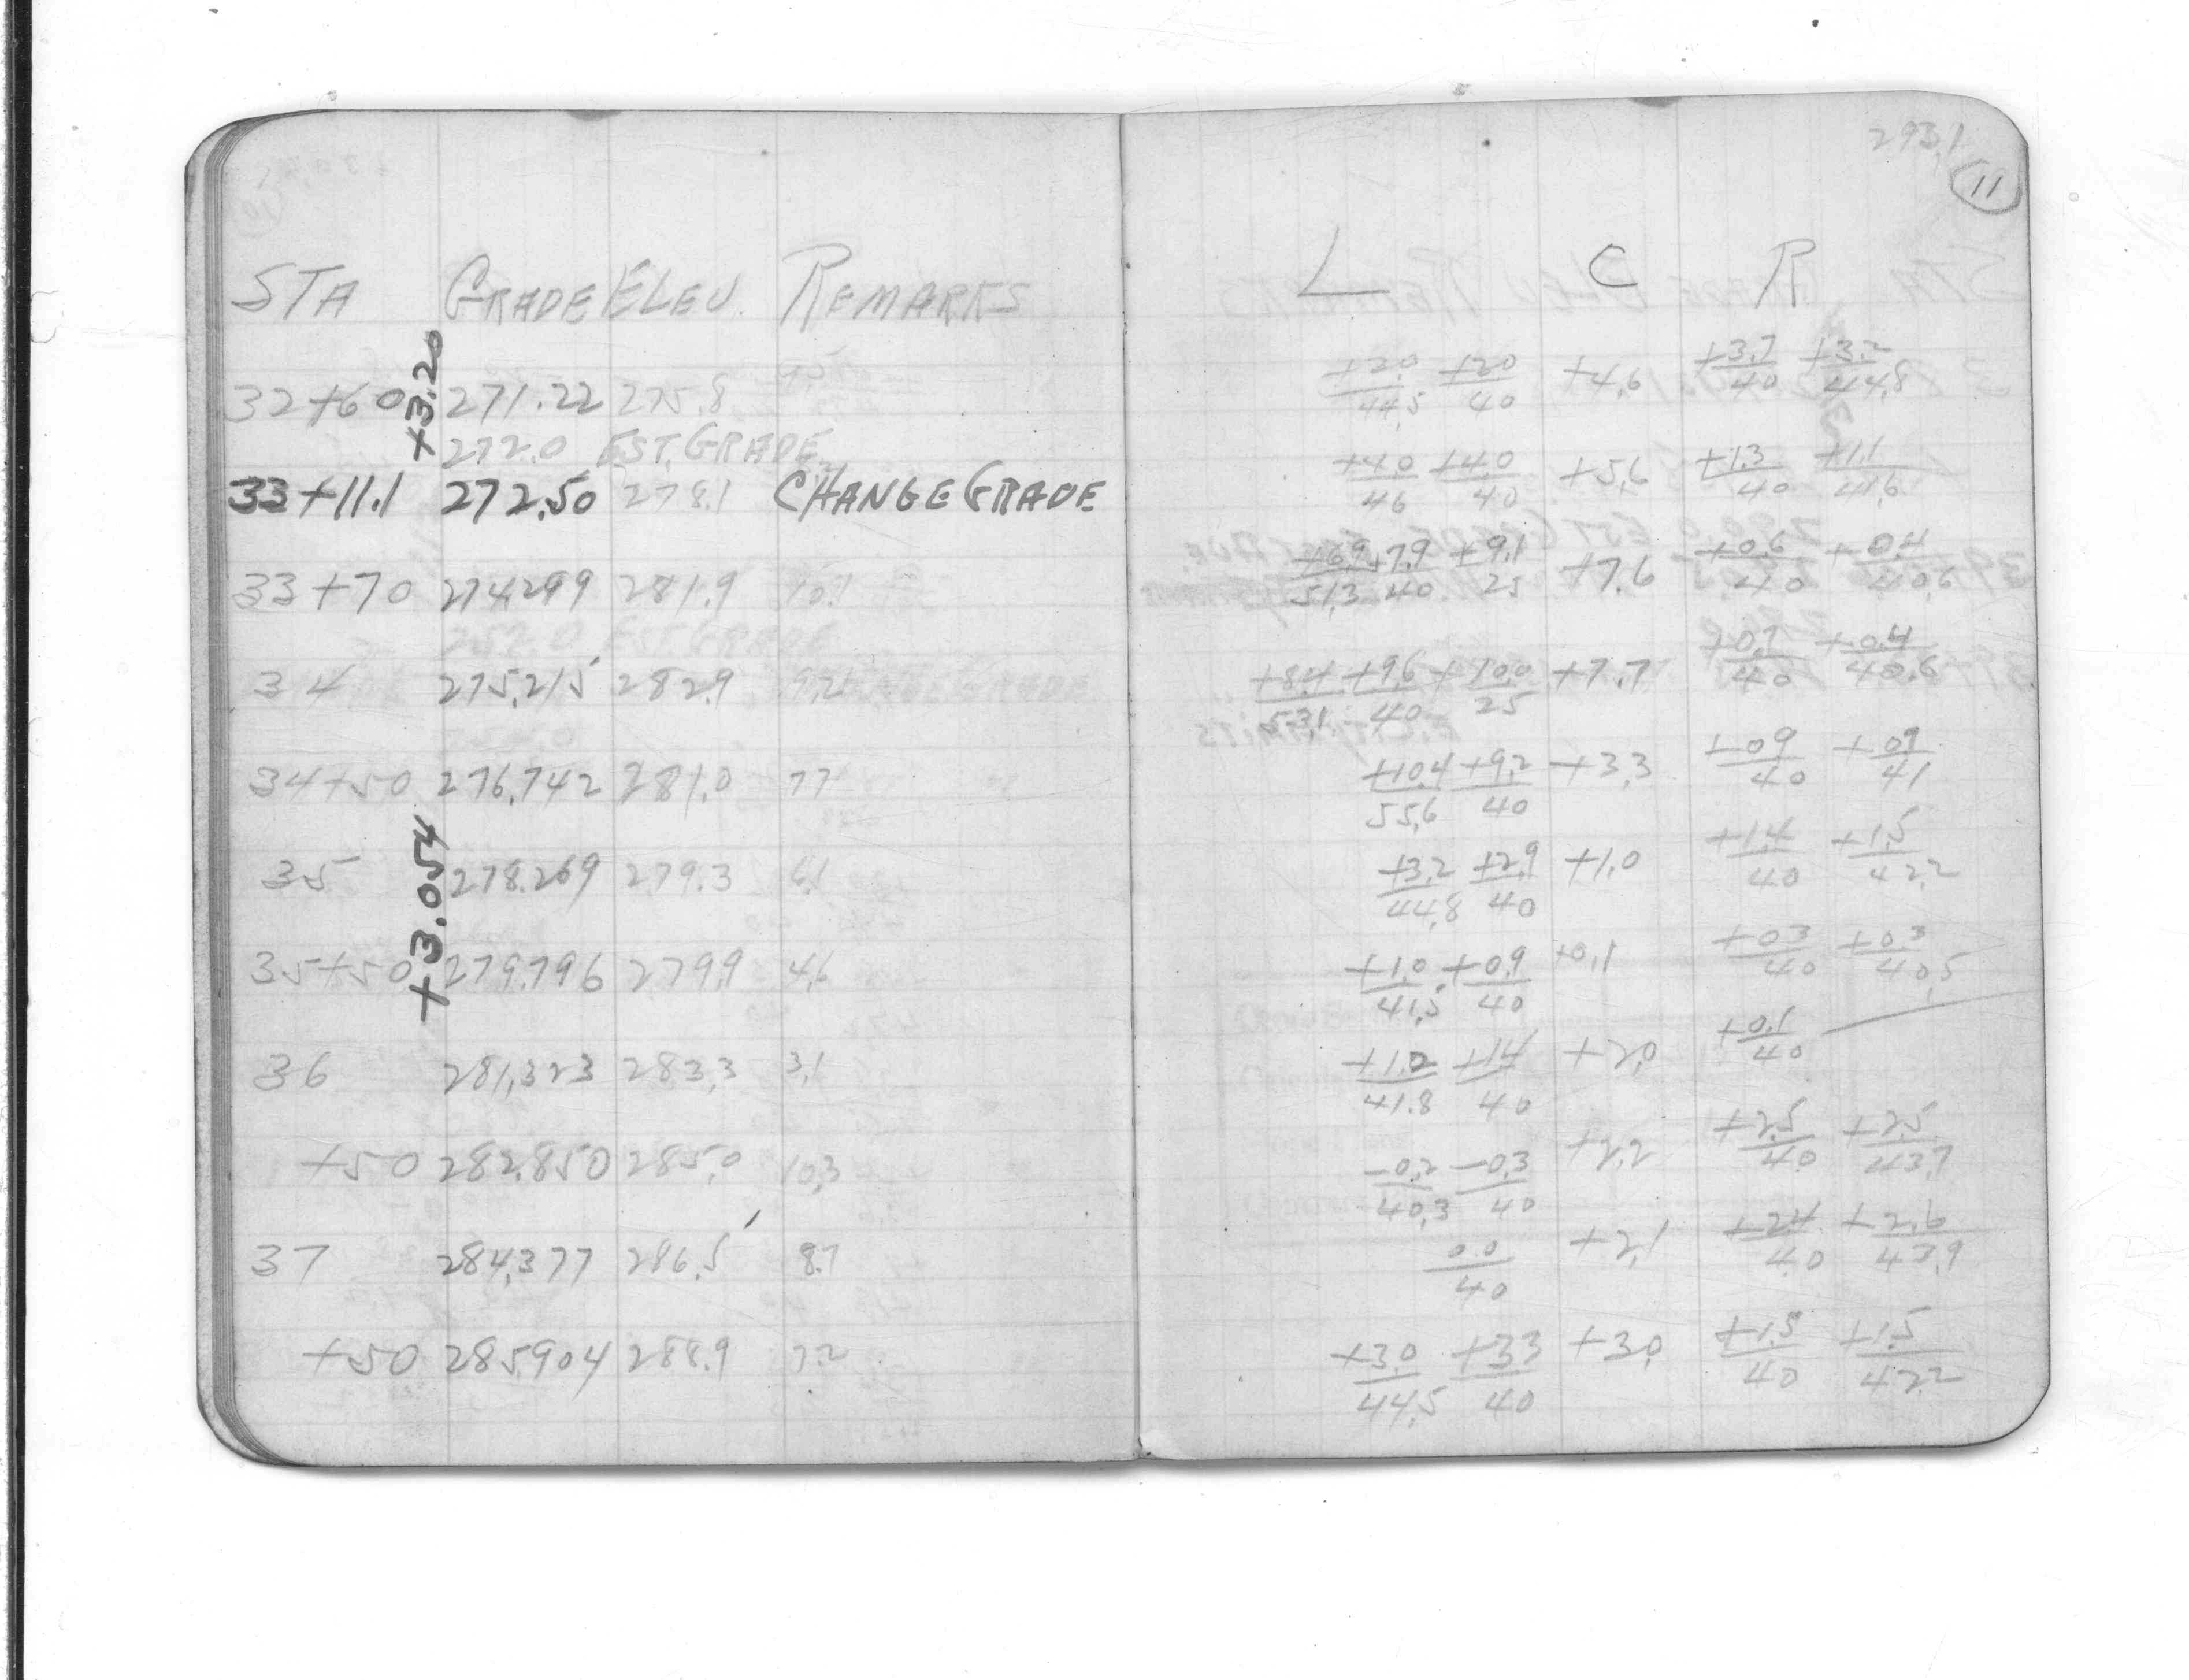 STA GRADE ELEV. REMARKS
+3.20
32+60 271.22 275.8
272.0 EST. GRADE
33+11.1 272.50 278.1 CHANGE GRADE
33+70 274.299 281.9 10.7
34 275.215 282.9 9.2
34+50 276.742 281.0 7.7
+3.054
35 278.269 279.3 6.1
35+50 279.796 279.9 4.6
36 281.323 283.3 3.1
+50 282.850 285.0 10.3
37 284.377 286.5 8.7
+50 285.904 288.9 7.2
293.1
11
L C R
+2.0/44.5 +2.0/40 +4.6 +3.7/40 +3.2/44.8
+4.0/46 +4.0/40 +5.6 +1.3/40 +1.1/41.6
+6.9/51.3 +7.9/40 +9.1/25 +7.6 +0.6/40 +0.4/40.6
+8.4/53.1 +9.6/40 +10.0/25 +7.7 +0.7/40 +0.4/40.6
+10.4/55.6 +9.2/40 +3.3 +0.9/40 +0.9/41
+3.2/44.8 +2.9/40 +1.0 +1.4/40 +1.5/42.2
+1.0/41.5 +0.9/40 +0.1 +0.3/40 +0.3/40.5
+1.2/41.8 +1.4/40 +2.0 +0.1/40
-0.2/40.3 -0.3/40 +2.2 +2.5/40 +2.5/43.7
0.0/40 +2.1 +2.4/40 +2.6/43.9
+3.0/44.5 +3.3/40 +3.0 +1.5/40 +1.5/42.2